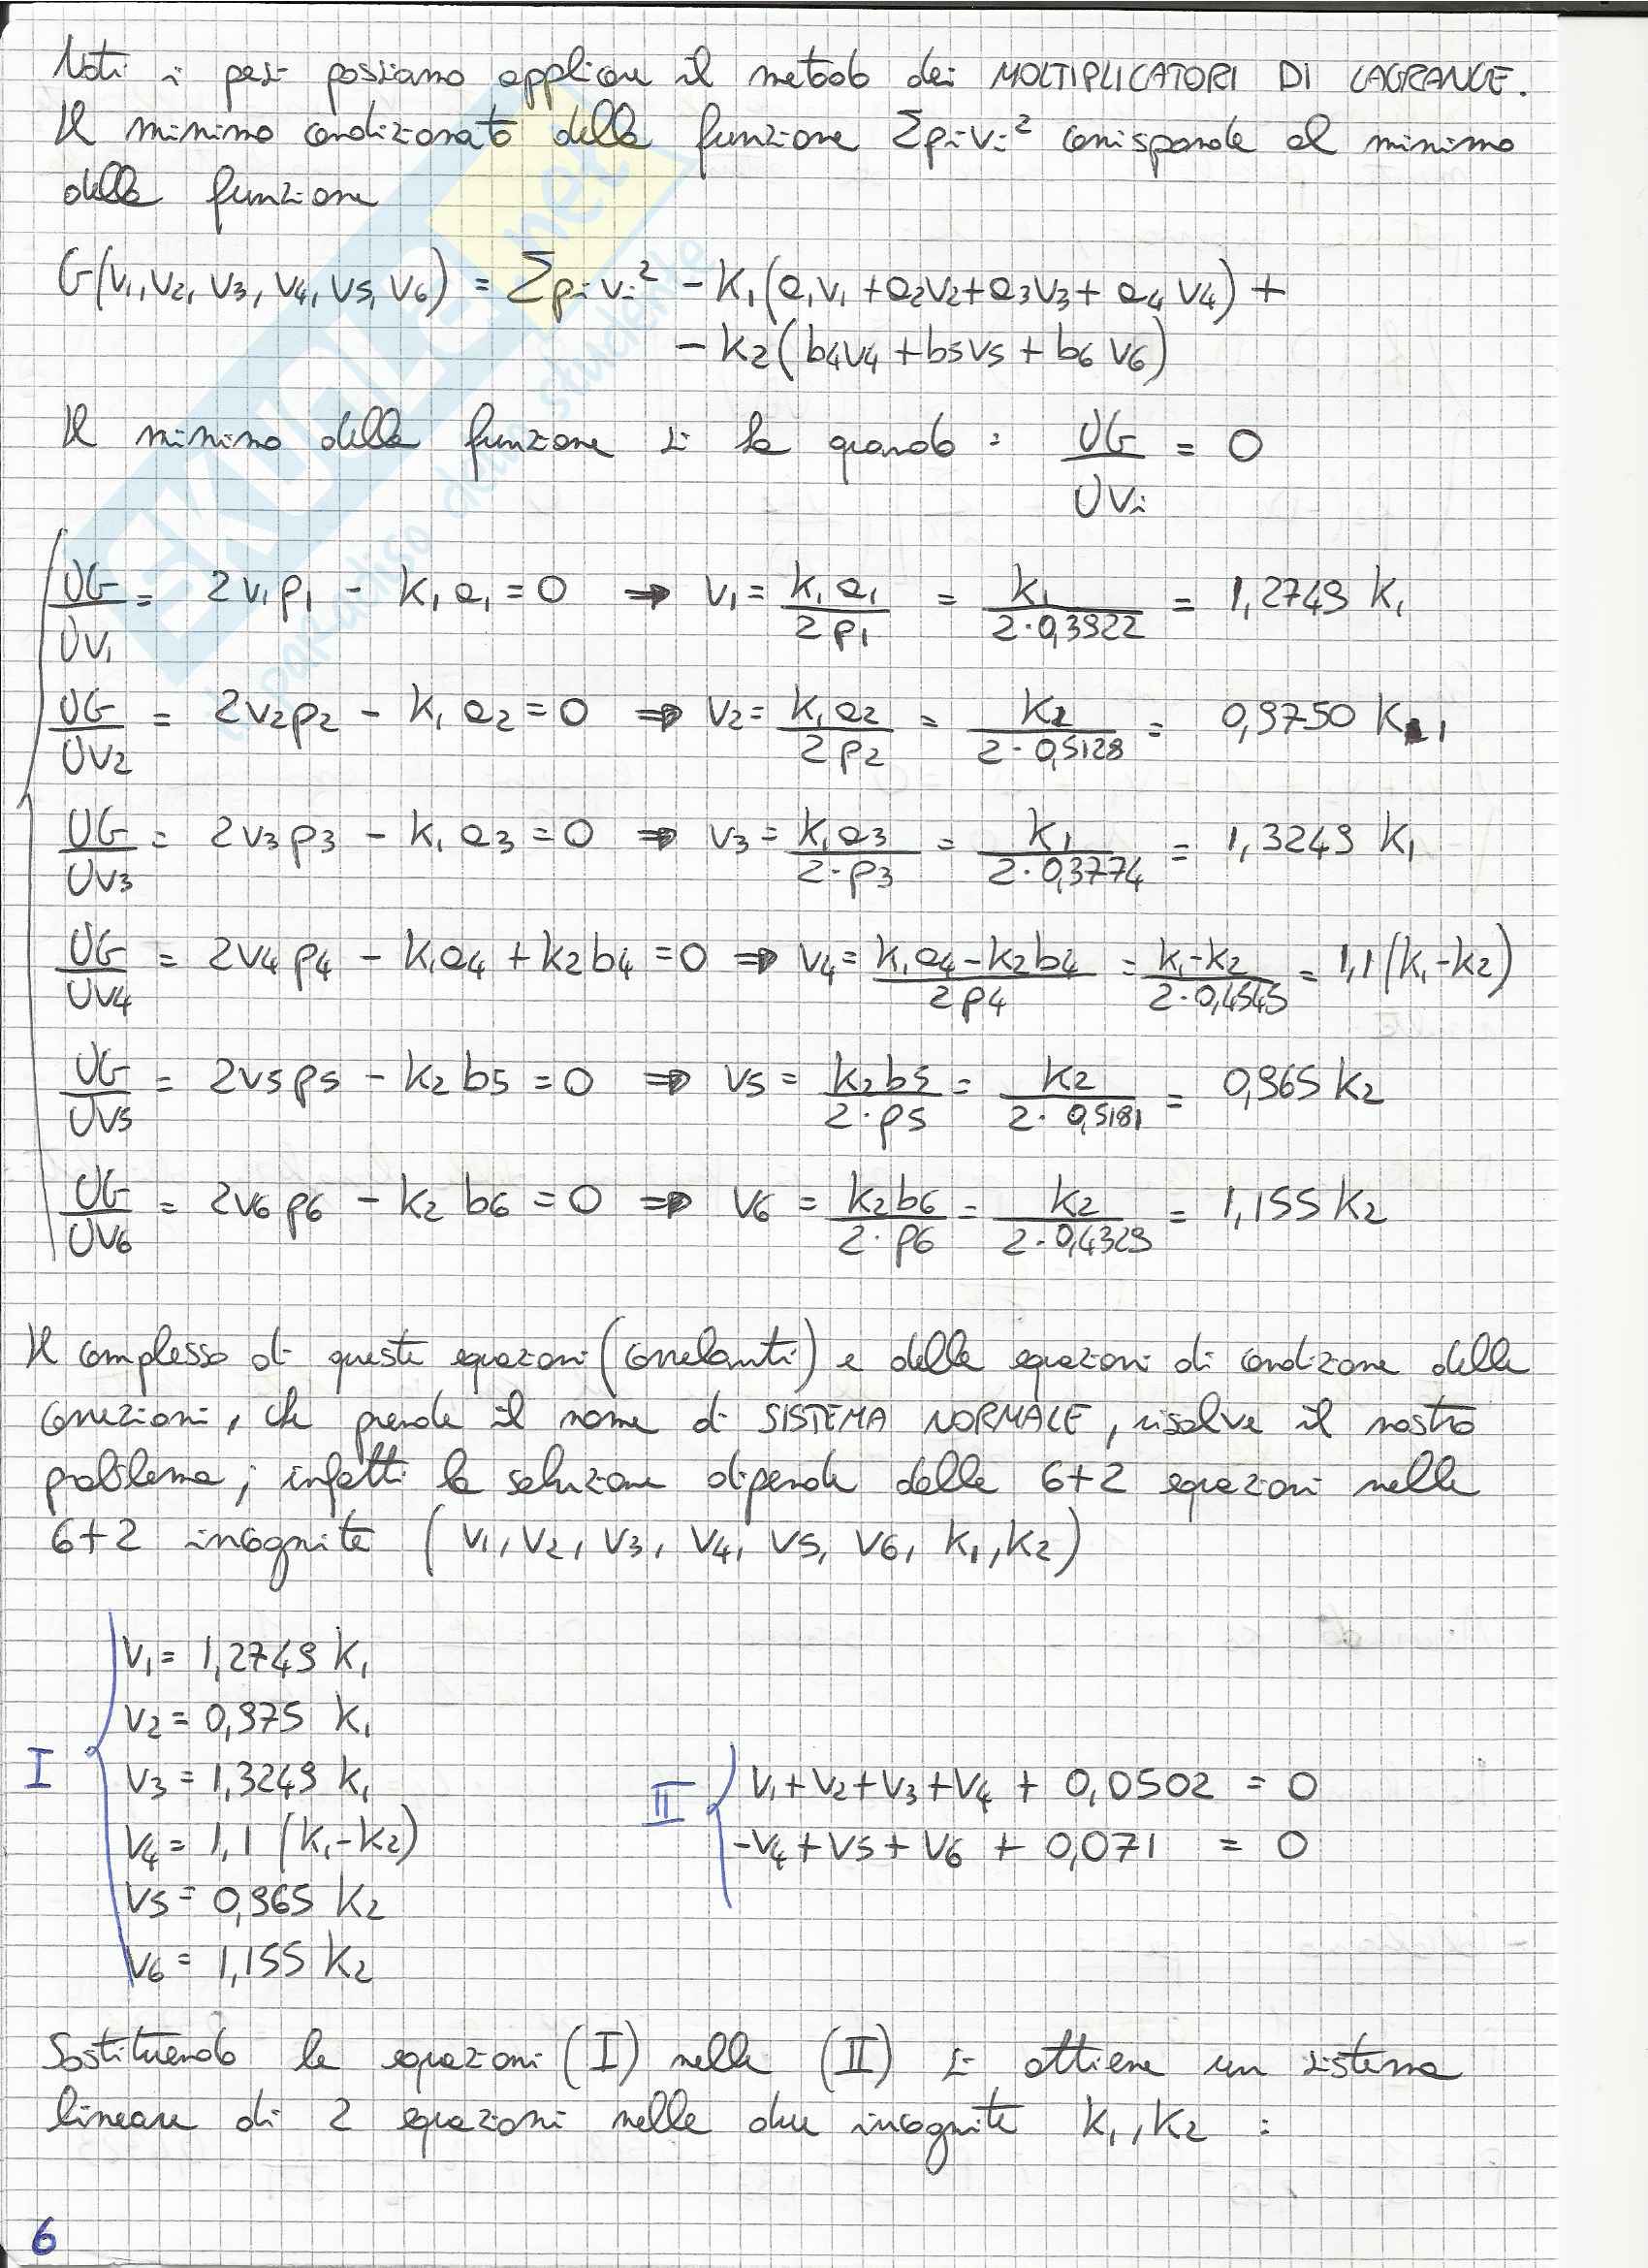 Noti i pesi possiamo applicare il metodo dei MOLTIPLICATORI DI LAGRANGE.
Il minimo condizionato della funzione Σpivi² corrisponde al minimo
della funzione
G(v1,v2,v3,v4,v5,v6) = Σpivi² - k1(a1v1+a2v2+a3v3+a4v4)+
-k2(b4v4+b5v5+b6v6)
Il minimo della funzione si ha quando: ∂G/∂vi = 0
∂G/∂v1 = 2v1p1 - k1a1 = 0 ⇒ v1 = k1a1/2p1 = k1/2·0,3922 = 1,2749 k1
∂G/∂v2 = 2v2p2 - k1a2 = 0 ⇒ v2 = k1a2/2p2 = k2/2·0,5128 = 0,9750 k1
∂G/∂v3 = 2v3p3 - k1a3 = 0 ⇒ v3 = k1a3/2·p3 = k1/2·0,3774 = 1,3249 k1
∂G/∂v4 = 2v4p4 - k1a4 + k2b4 = 0 ⇒ v4 = k1a4-k2b4/2p4 = k1-k2/2·0,4545 = 1,1(k1-k2)
∂G/∂v5 = 2v5p5 - k2b5 = 0 ⇒ v5 = k2b5/2·p5 = k2/2·0,5181 = 0,965 k2
∂G/∂v6 = 2v6p6 - k2b6 = 0 ⇒ v6 = k2b6/2·p6 = k2/2·0,4329 = 1,155 k2
Il complesso di queste equazioni (correlanti) e delle equazioni di condizione delle
correzioni, che prende il nome di SISTEMA NORMALE, risolve il nostro
problema; infatti la soluzione dipende dalle 6+2 equazioni nelle
6+2 incognite (v1,v2,v3,v4,v5,v6,k1,k2)
I
v1 = 1,2749 k1
v2 = 0,975 k1
v3 = 1,3249 k1
v4 = 1,1 (k1-k2)
v5 = 0,965 k2
v6 = 1,155 k2
II
v1+v2+v3+v4 + 0,0502 = 0
-v4+v5+v6 + 0,071 = 0
Sostituendo le equazioni (I) nelle (II) si ottiene un sistema
lineare di 2 equazioni nelle due incognite k1,k2 :
6